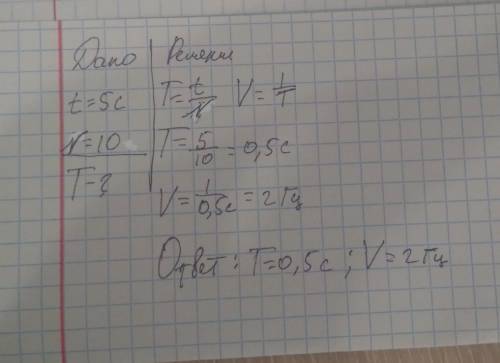 Дано Решение
t=5c T=t/N V=1/T
N=10 T=5/10=0,5c
T-? V=1/0,5c=2Гц
Ответ: T=0,5c; V=2Гц